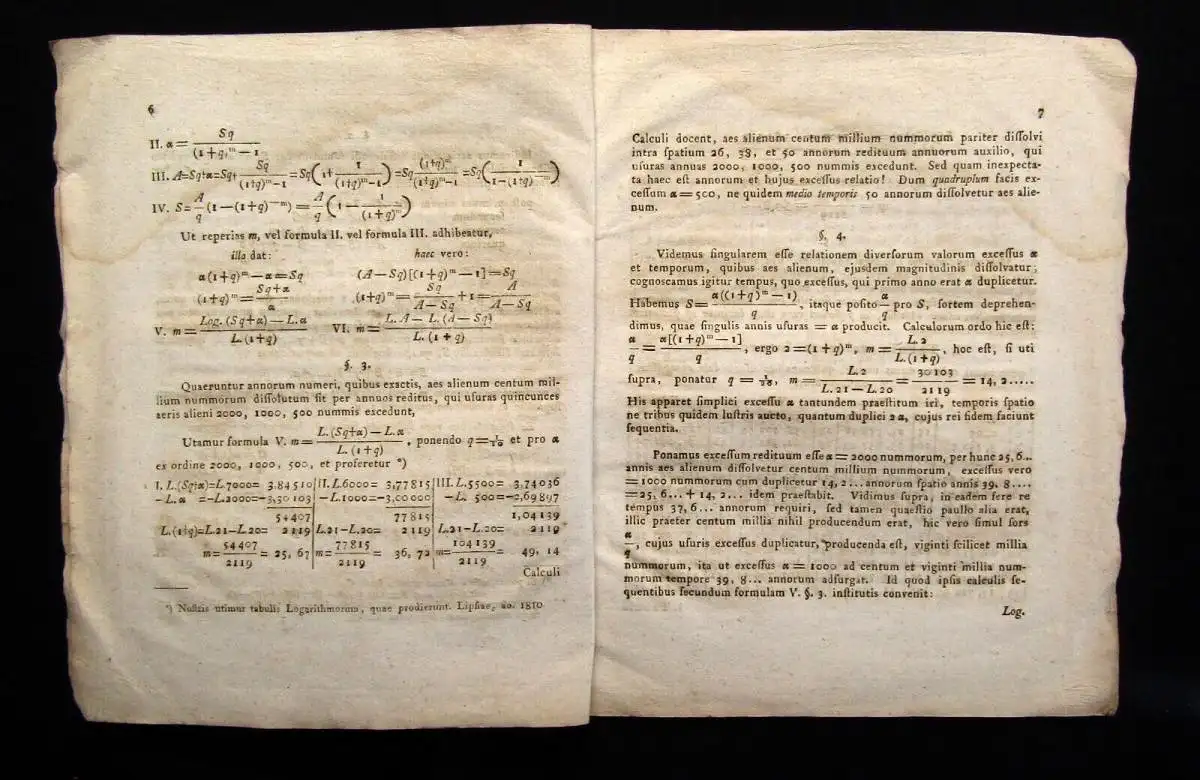 6
II. α = Sq / ((1+q)^m − 1)
III. A=Sq+α=Sq+ Sq/((1+q)^m−1) =Sq(1+ 1/((1+q)^m−1)) =Sq (1+q)^m/((1+q)^m−1) =Sq(1/(1−(1+q)))
IV. S= A/q (1−(1+q)^−m) = A/q (1 − 1/(1+q)^m)
Ut reperias m, vel formula II. vel formula III. adhibeatur,
illa dat: haec vero:
α(1+q)^m − α = Sq (A − Sq)[(1+q)^m − 1] = Sq
(1+q)^m = (Sq+α)/α (1+q)^m = Sq/(A−Sq) + 1 = A/(A−Sq)
V. m = (Log. (Sq+α) − L. α)/(L. (1+q)) VI. m = (L. A − L. (A − Sq))/(L. (1+q))
§. 3.
Quaeruntur annorum numeri, quibus exactis, aes alienum centum mil-
lium nummorum dissolutum sit per annuos reditus, qui usuras quincunces
aeris alieni 2000, 1000, 500 nummis excedunt,
Utamur formula V. m = (L. (Sq+α) − L. α)/(L. (1+q)), ponendo q = 1/20 et pro α
ex ordine 2000, 1000, 500, et proferetur *)
I. L.(Sq+α)=L.7000= 3.84510 II. L.6000= 3,77815 III. L.5500= 3,74036
−L. α =−L.2000=−3,30103 −L.1000=−3,00000 −L. 500=−2,69897
54407 77815 1,04139
L.(1+q)=L.21−L.20= 2119 L.21−L.20= 2119 L.21−L.20= 2119
m= 54407/2119 = 25, 67 m= 77815/2119 = 36, 72 m= 104139/2119 = 49, 14
Calculi
*) Nostris utimur tabulis Logarithmorum, quae prodierunt. Lipsiae, ao. 1810
7
Calculi docent, aes alienum centum millium nummorum pariter dissolvi
intra spatium 26, 38, et 50 annorum redituum annuorum auxilio, qui
usuras annuas 2000, 1000, 500 nummis excedunt. Sed quam inexpecta-
ta haec est annorum et hujus excessus relatio! Dum quadruplum facis ex-
cessum α = 500, ne quidem medio temporis 50 annorum dissolvetur aes alie-
num.
§. 4.
Videmus singularem esse relationem diversorum valorum excessus α
et temporum, quibus aes alienum, ejusdem magnitudinis dissolvatur;
cognoscamus igitur tempus, quo excessus, qui primo anno erat α duplicetur.
Habemus S = α((1+q)^m − 1)/q, itaque posito α/q pro S, sortem deprehen-
dimus, quae singulis annis usuras = α producit. Calculorum ordo hic est:
α/q = α[(1+q)^m − 1]/q, ergo 2 = (1+q)^m, m = L.2/L.(1+q), hoc est, si uti
supra, ponatur q = 1/20, m = L.2/(L.21 − L.20) = 30103/2119 = 14, 2.....
His apparet simplici excessu α tantundem praestitum iri, temporis spatio
ne tribus quidem lustris aucto, quantum duplici 2α, cujus rei fidem faciunt
sequentia.
Ponamus excessum redituum esse α = 2000 nummorum, per hunc 25, 6...
annis aes alienum dissolvetur centum millium nummorum, excessus vero
= 1000 nummorum cum duplicetur 14, 2... annorum spatio annis 39, 8....
= 25, 6... + 14, 2... idem praestabit. Vidimus supra, in eadem fere re
tempus 37, 6... annorum requiri, sed tamen quaestio paullo alia erat,
illic praeter centum millia nihil producendum erat, hic vero simul sors
α/q, cujus usuris excessus duplicatur, producenda est, viginti scilicet millia
nummorum, ita ut excessus α = 1000 ad centum et viginti millia num-
morum tempore 39, 8... annorum adsurgat. Id quod ipsis calculis se-
quentibus secundum formulam V. §. 3. institutis convenit:
Log.